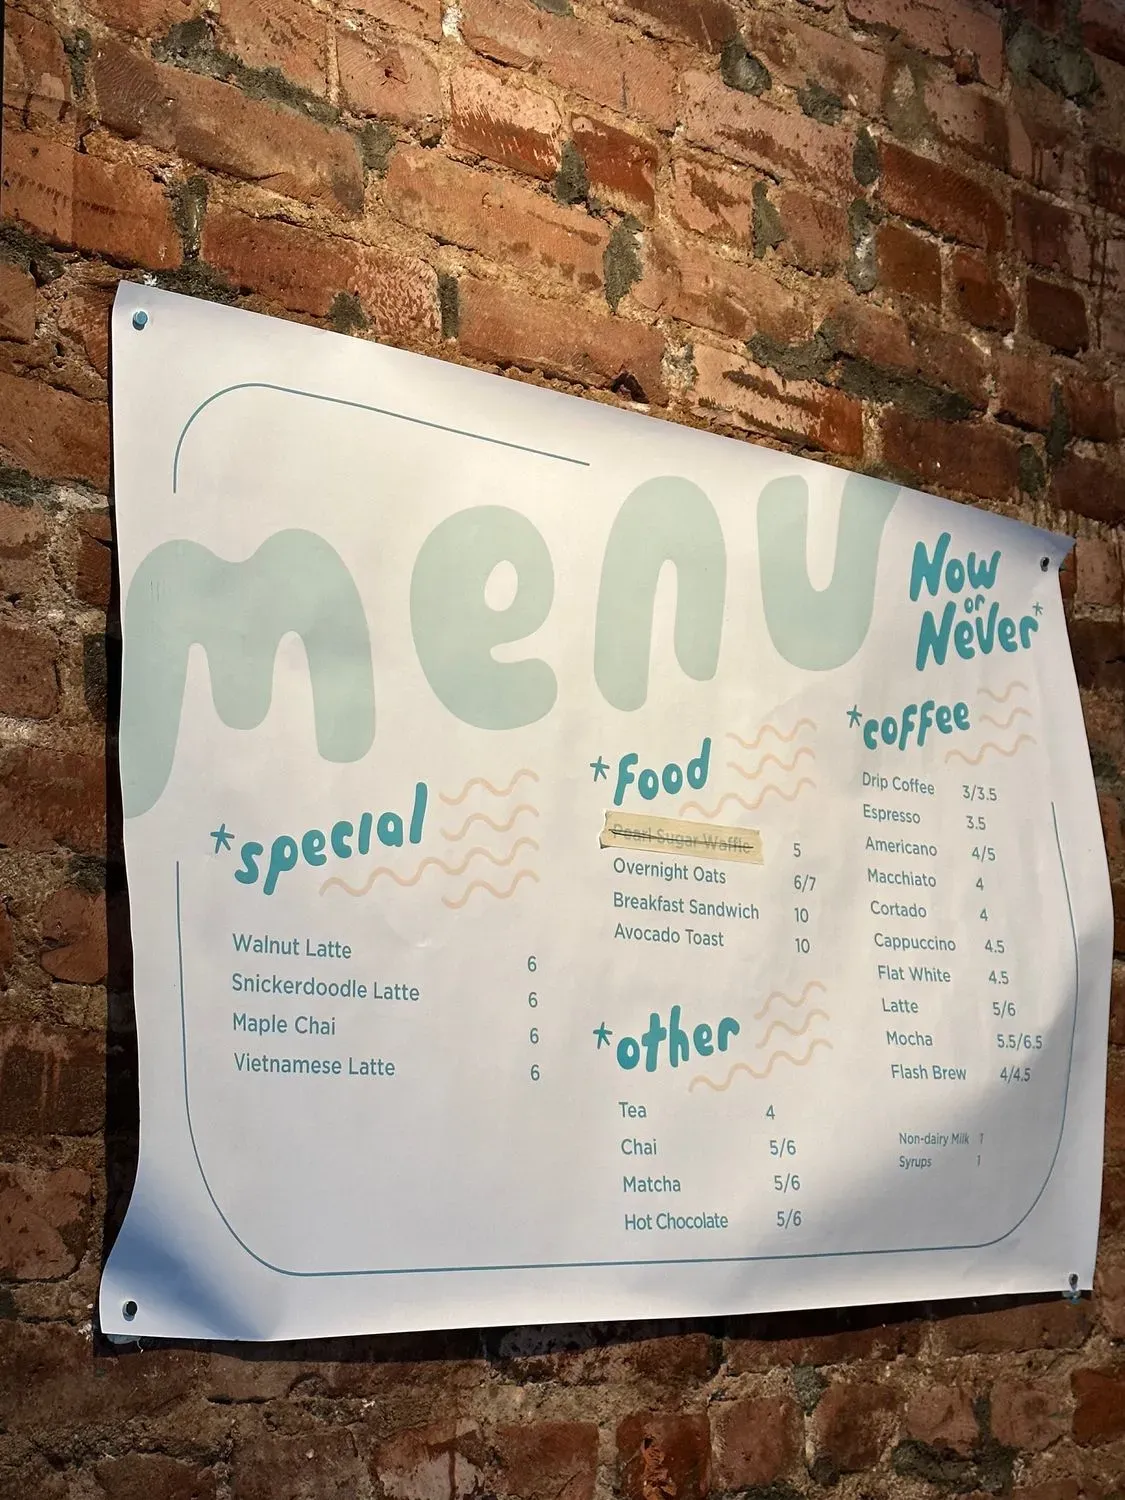 menu
Now
or
Never*
*special
Walnut Latte 6
Snickerdoodle Latte 6
Maple Chai 6
Vietnamese Latte 6
*Food
Pearl Sugar Waffle 5
Overnight Oats 6/7
Breakfast Sandwich 10
Avocado Toast 10
*other
Tea 4
Chai 5/6
Matcha 5/6
Hot Chocolate 5/6
*coffee
Drip Coffee 3/3.5
Espresso 3.5
Americano 4/5
Macchiato 4
Cortado 4
Cappuccino 4.5
Flat White 4.5
Latte 5/6
Mocha 5.5/6.5
Flash Brew 4/4.5
Non-dairy Milk 1
Syrups 1